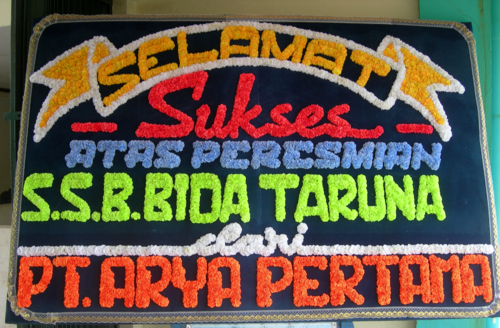 SELAMAT
Sukses
ATAS PERESMIAN
S.S.B.BIDA TARUNA
dari
PT. ARYA PERTAMA